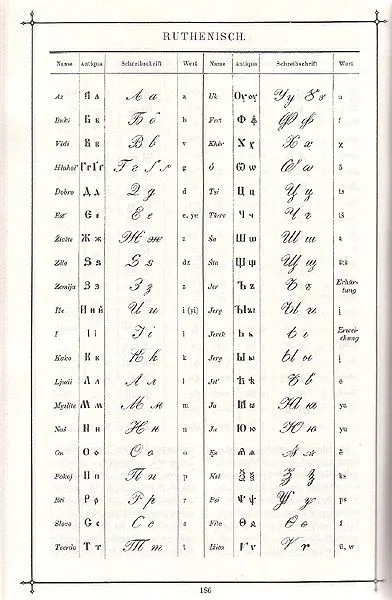 RUTHENISCH.
Name Antiqua Schreibschrift Wert Name Antiqua Schreibschrift Wert
Az Ѧ ѧ А а a Uk Оу оу У у Ȣ ȣ u
Buki Б б Б б b Fert Ф ф Ф ф f
Vidi В в В в v Khir Х χ Х х χ
Hlahol' Г г Ґ ґ Г г g ó Ѡ ѡ Ѡ ѡ ō
Dobro Д д D д d Tsi Ц ц Ц ц ts
Est' Є є Е е e, ye Tšerv Ч ч Ч ч tš
Živite Ж ж Ж ж ž Ša Ш ш Ш ш š
Zilo Ѕ ѕ Ѕ ѕ dz Šta Щ щ Щ щ štš
Zemlja З з З з z Jer Ъ ъ Ъ ъ Erhär-tung
Iže И и й И и i (yi) Jerý Ꙑ ꙑ Ы ы
I І і І і i Jerek Ь ь ь Erwei-chung
Kako К к К k k Jerý Ы ы Ы ы
Ljudi Л л Л л l Jet' Ѣ ѣ Ѣ ѣ ě
Myslite М м М м m Ja Ꙗ ꙗ Ю ю ya
Naš Н н Н н n Ju Ю ю Ю ю yu
On О о О о o Ѫ ѫ
Pokoj П п П п p Ksi Ѯ ѯ Ѯ ѯ ks
Rci Р р Р р r Psi Ѱ ѱ Ѱ ѱ ps
Slovo С с С с s Fita Ѳ ѳ Ѳ ѳ f
Tverdo Т т Т т t Ižica Ѵ ѵ V v ü, w
186